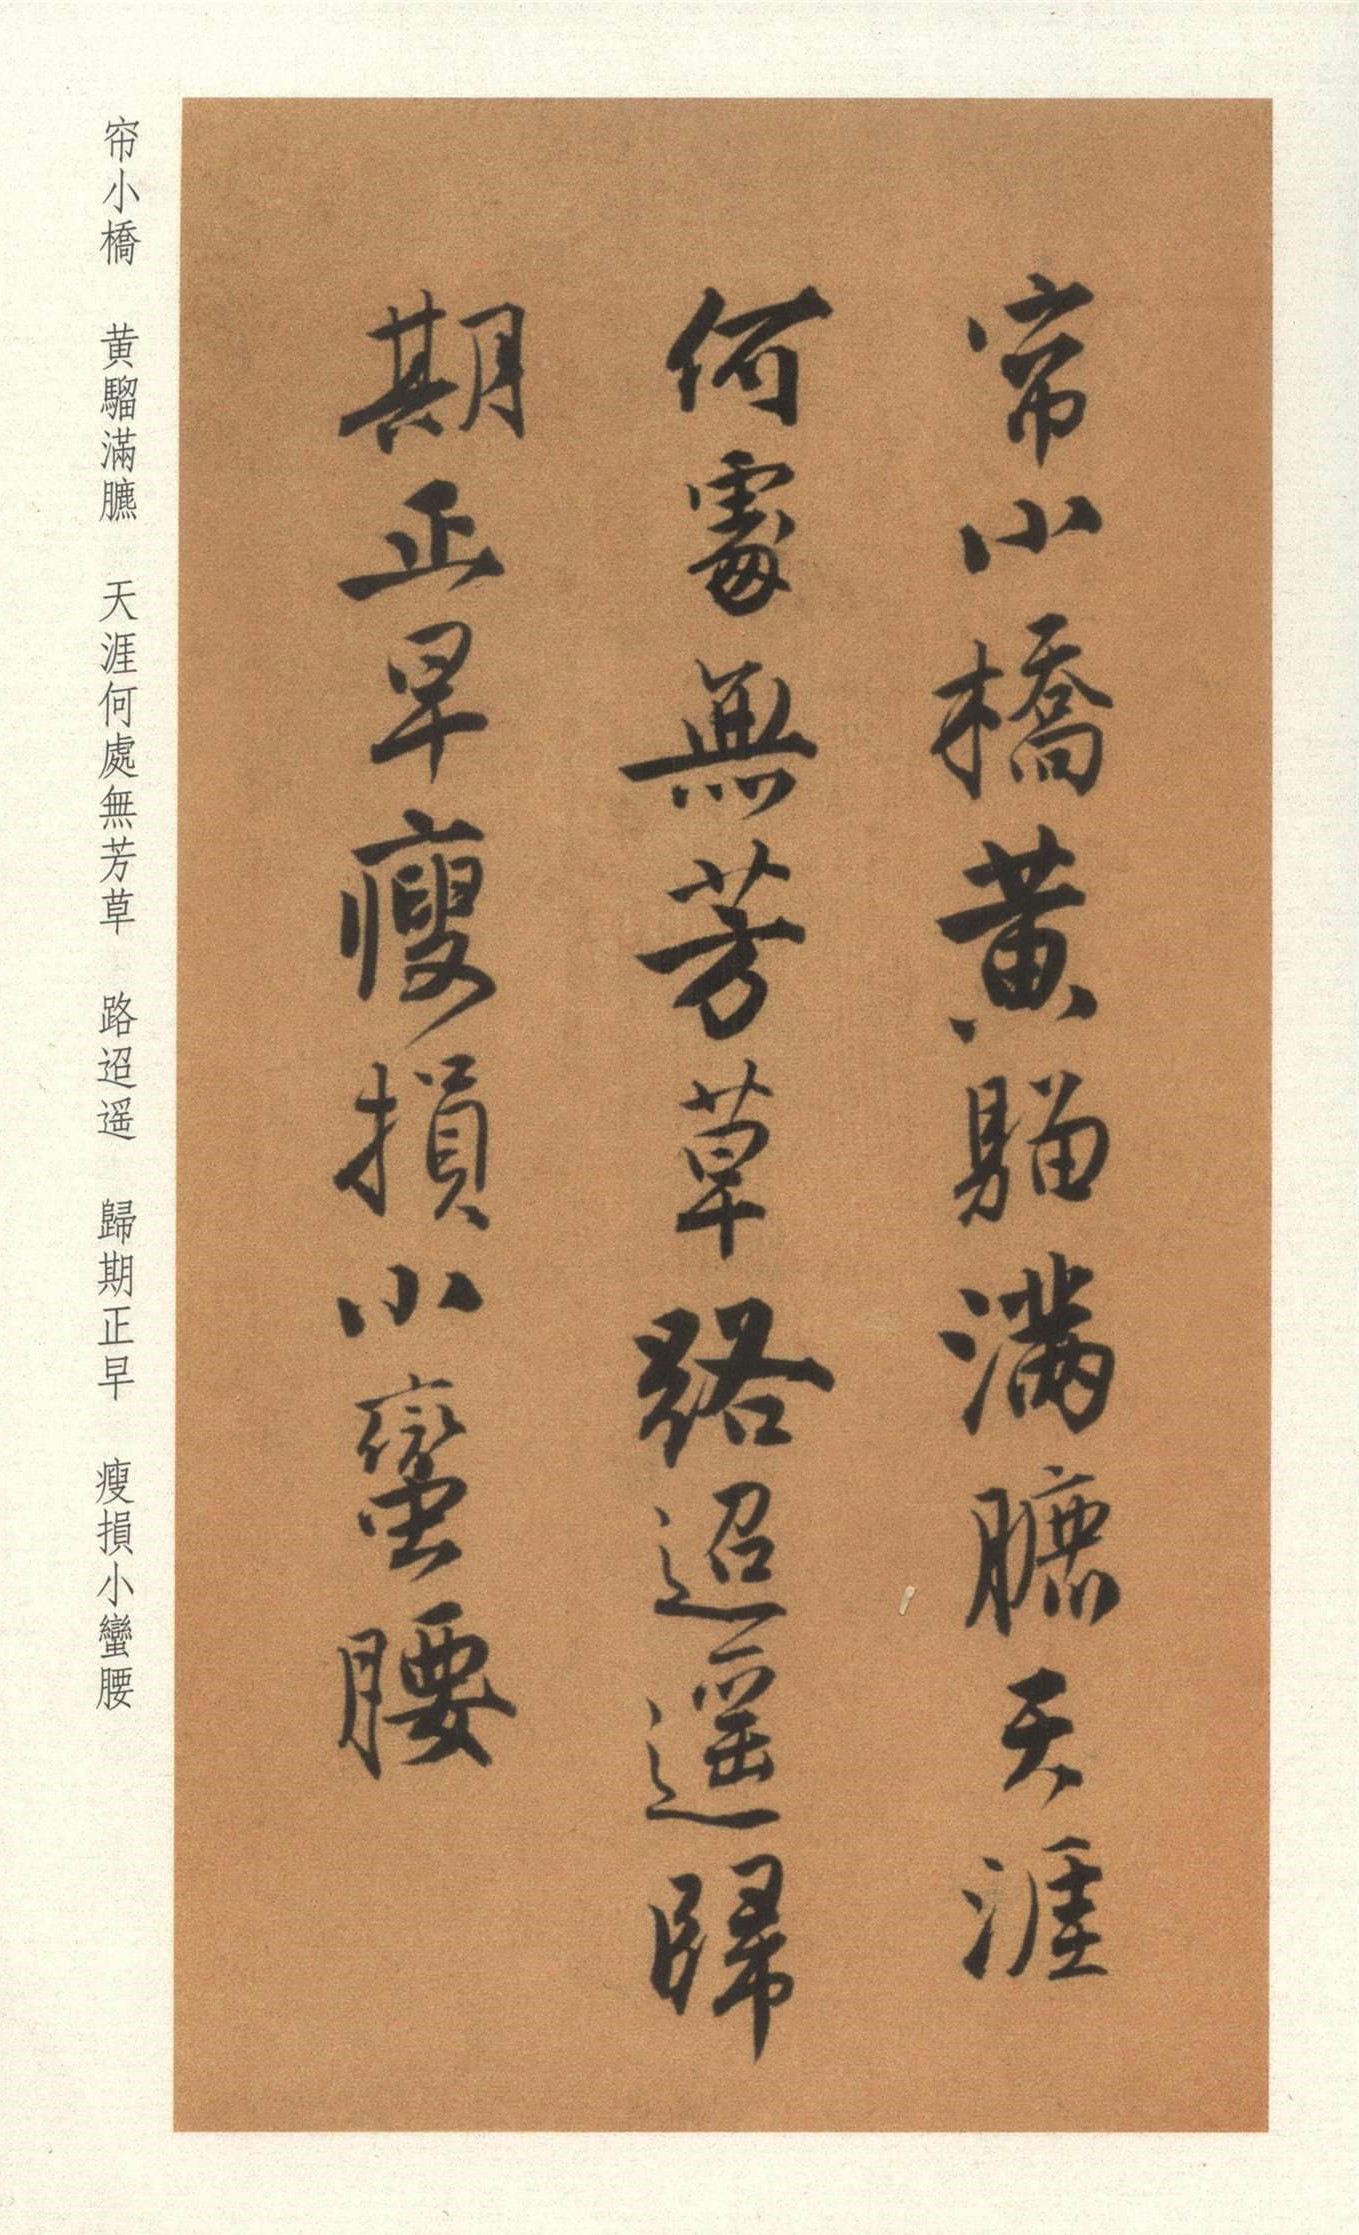 帘小橋黄騮滿臕天涯
何處無芳草路迢遥歸
期正早瘦損小蠻腰
帘小橋　黄騮滿臕　天涯何處無芳草　路迢遥　歸期正早　瘦損小蠻腰